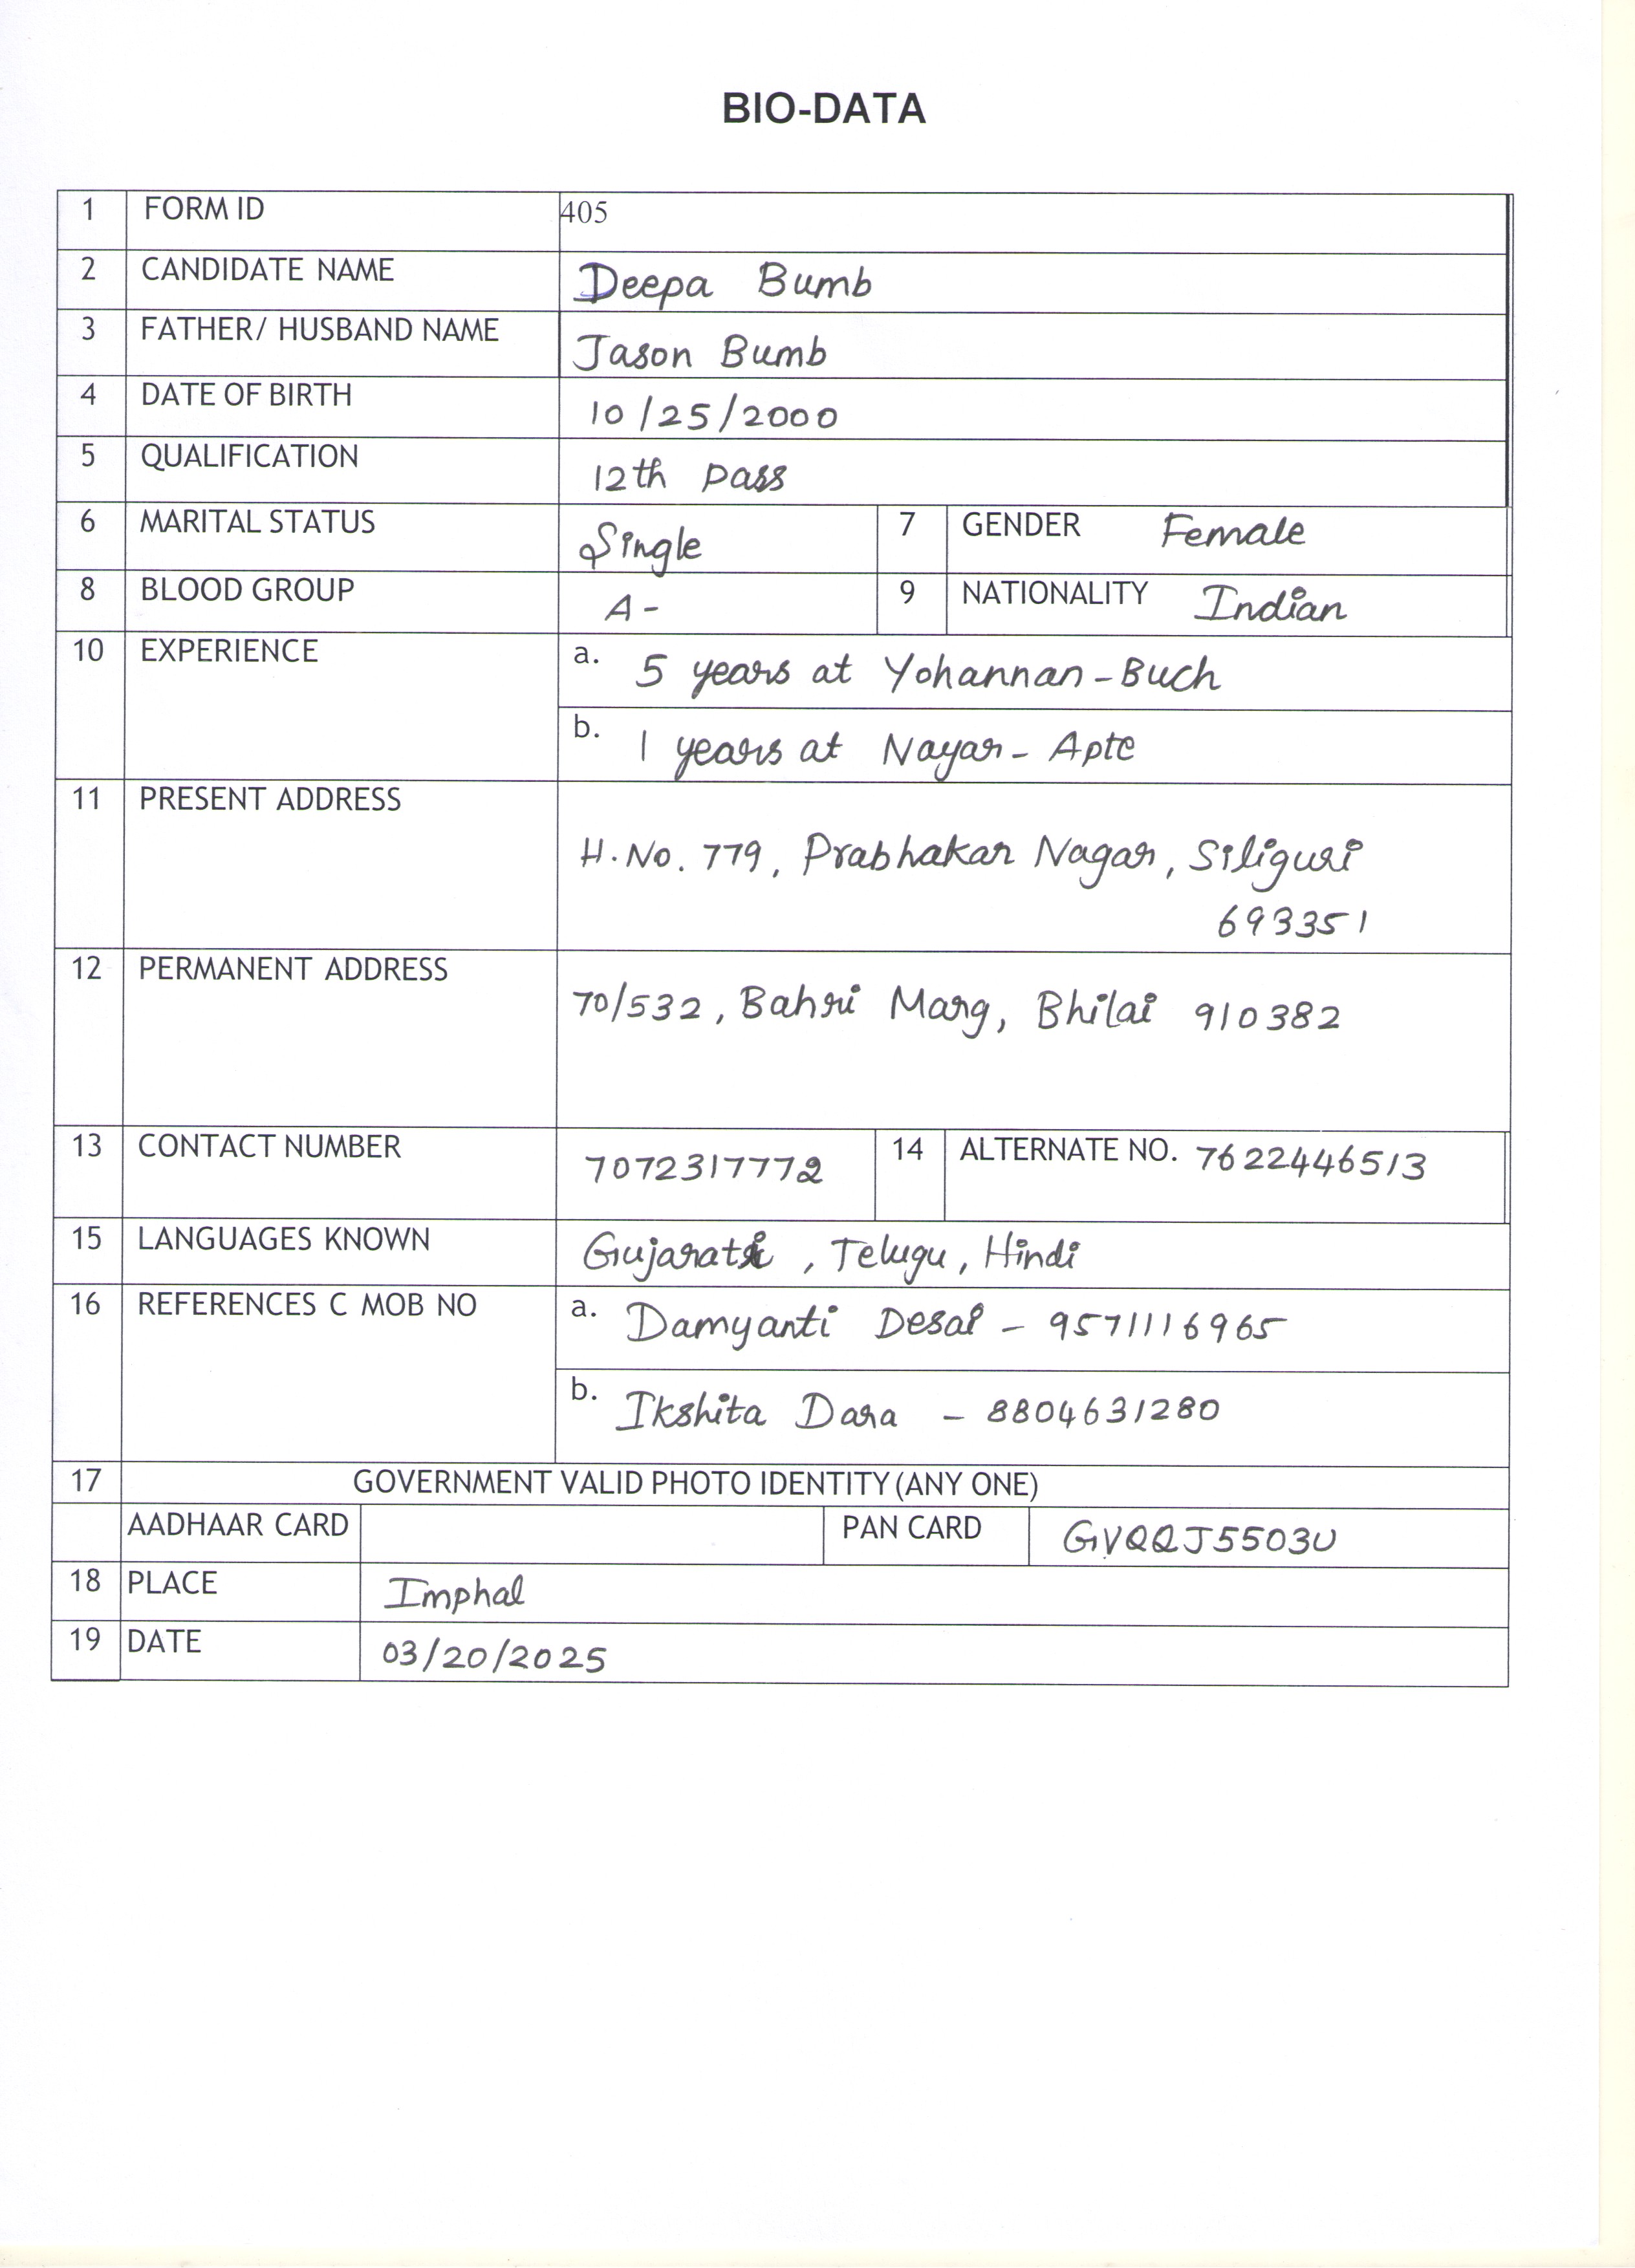 BIO-DATA
1 FORM ID 405
2 CANDIDATE NAME Deepa Bumb
3 FATHER/ HUSBAND NAME Jason Bumb
4 DATE OF BIRTH 10/25/2000
5 QUALIFICATION 12th pass
6 MARITAL STATUS Single 7 GENDER Female
8 BLOOD GROUP A- 9 NATIONALITY Indian
10 EXPERIENCE a. 5 years at Yohannan-Buch
b. 1 years at Nayar-Apte
11 PRESENT ADDRESS
H.No. 779, Prabhakar Nagar, Siliguri
693351
12 PERMANENT ADDRESS
70/532, Bahri Marg, Bhilai 910382
13 CONTACT NUMBER 7072317772 14 ALTERNATE NO. 7622446513
15 LANGUAGES KNOWN Gujarati, Telugu, Hindi
16 REFERENCES C MOB NO a. Damyanti Desai - 9571116965
b. Ikshita Dara - 8804631280
17 GOVERNMENT VALID PHOTO IDENTITY (ANY ONE)
AADHAAR CARD PAN CARD GVQQJ5503U
18 PLACE Imphal
19 DATE 03/20/2025